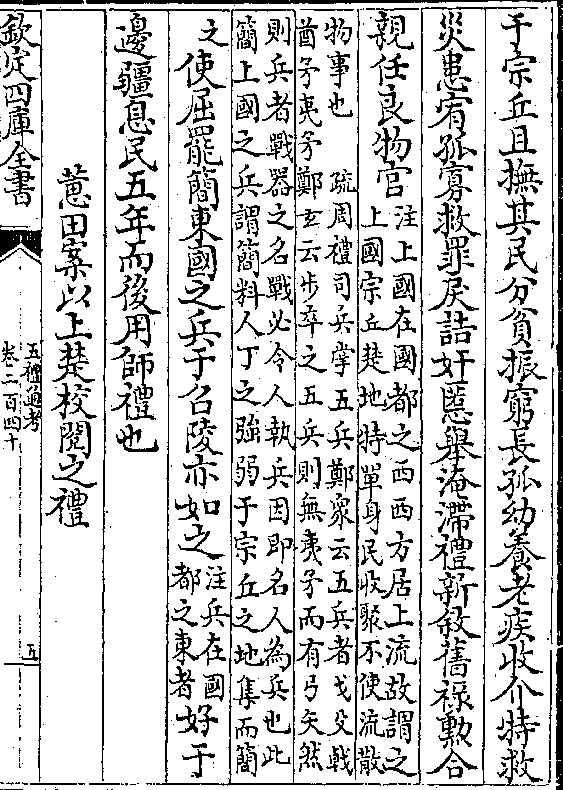 于宗丘且撫其民分貧振窮長孤幼養老疾收介特救
災患宥孤寡赦罪戾詰奸慝舉淹滯禮新敘舊祿勲合
親任良物官
注上國在國都之西西方居上流故謂之
上國宗丘楚地特單身民收聚不使流散
物事也 疏周禮司兵掌五兵鄭衆云五兵者戈殳戟
酋矛夷矛鄭玄云步卒之五兵則無夷矛而有弓矢然
則兵者戰器之名戰必令人執兵因即名人為兵也此
簡上國之兵謂簡料人丁之強弱于宗丘之地集而簡
之
使屈罷簡東國之兵于召陵亦如之
注兵在國
都之東者
好于
邊疆息民五年而後用師禮也
蕙田案以上楚校閱之禮
欽定四庫全書
五禮通考
卷二百四十
五